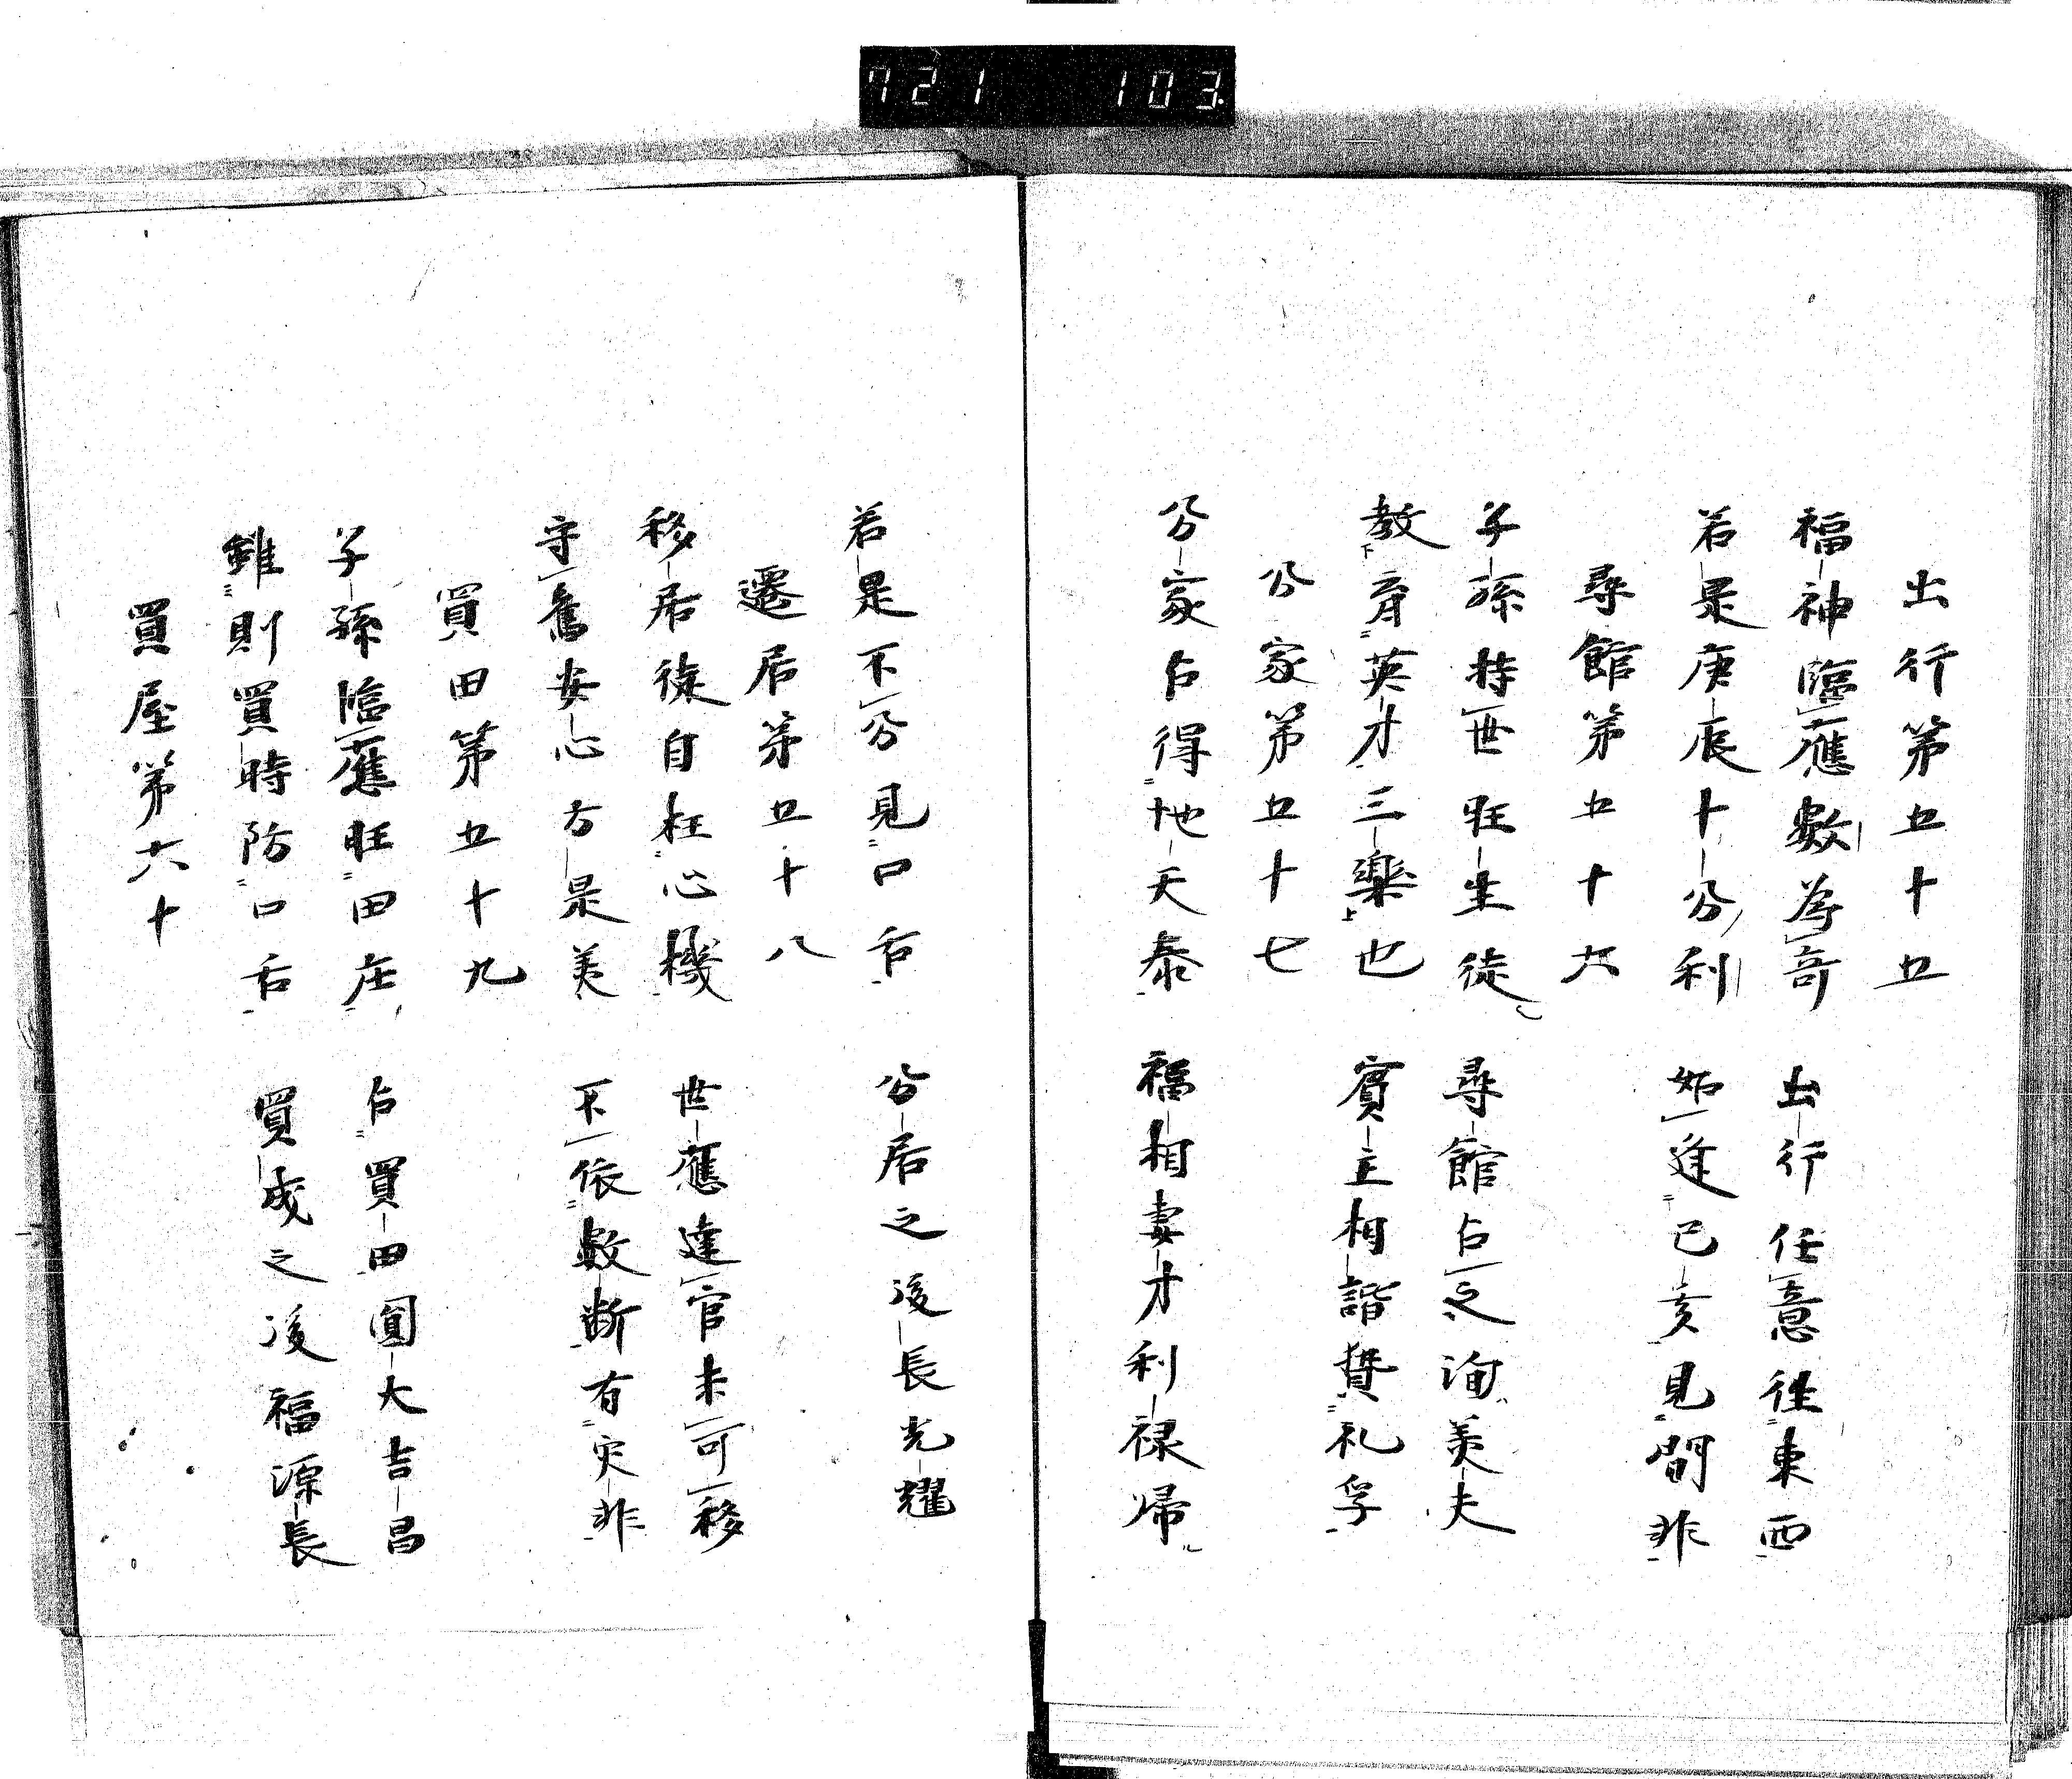 721 103
出行第五十五
福神臨應數為奇 出行任意徃東西
若是庚辰十分利 如逢己亥見間非
尋館第五十六
子孫持世旺生徒 尋館占之洵美夫
教育英才三樂也 賓主相諧贄礼孚
分家第五十七
分家占得地天泰 福相妻才利禄帰
若是不分見口舌 分居之後長光耀
遷居第五十八
移居徒自枉心機 世應逢官未可移
守舊安心方是美 不依數断有灾非
買田第五十九
子孫臨應旺田庄 占買田園大吉昌
雖則買時防口舌 買成之後福源長
買屋第六十